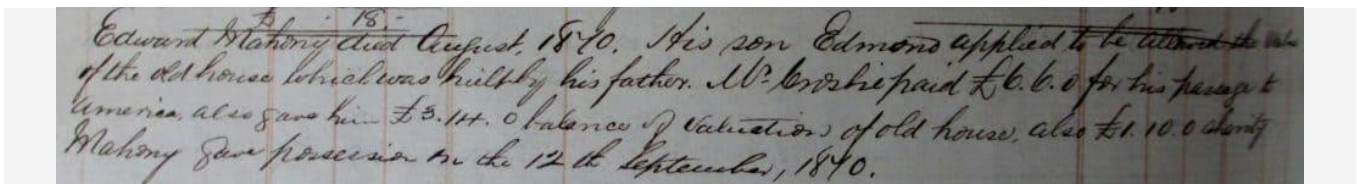 18
Edward Mahony died August, 1870. His son Edmond applied to be allowed the value
of the old house which was built by his father. Mr. Crosbie paid £6.6.0 for his passage to
America, also gave him £3.14.0 balance of valuation of old house, also £1.10.0 charity
Mahony gave possession on the 12th September, 1870.